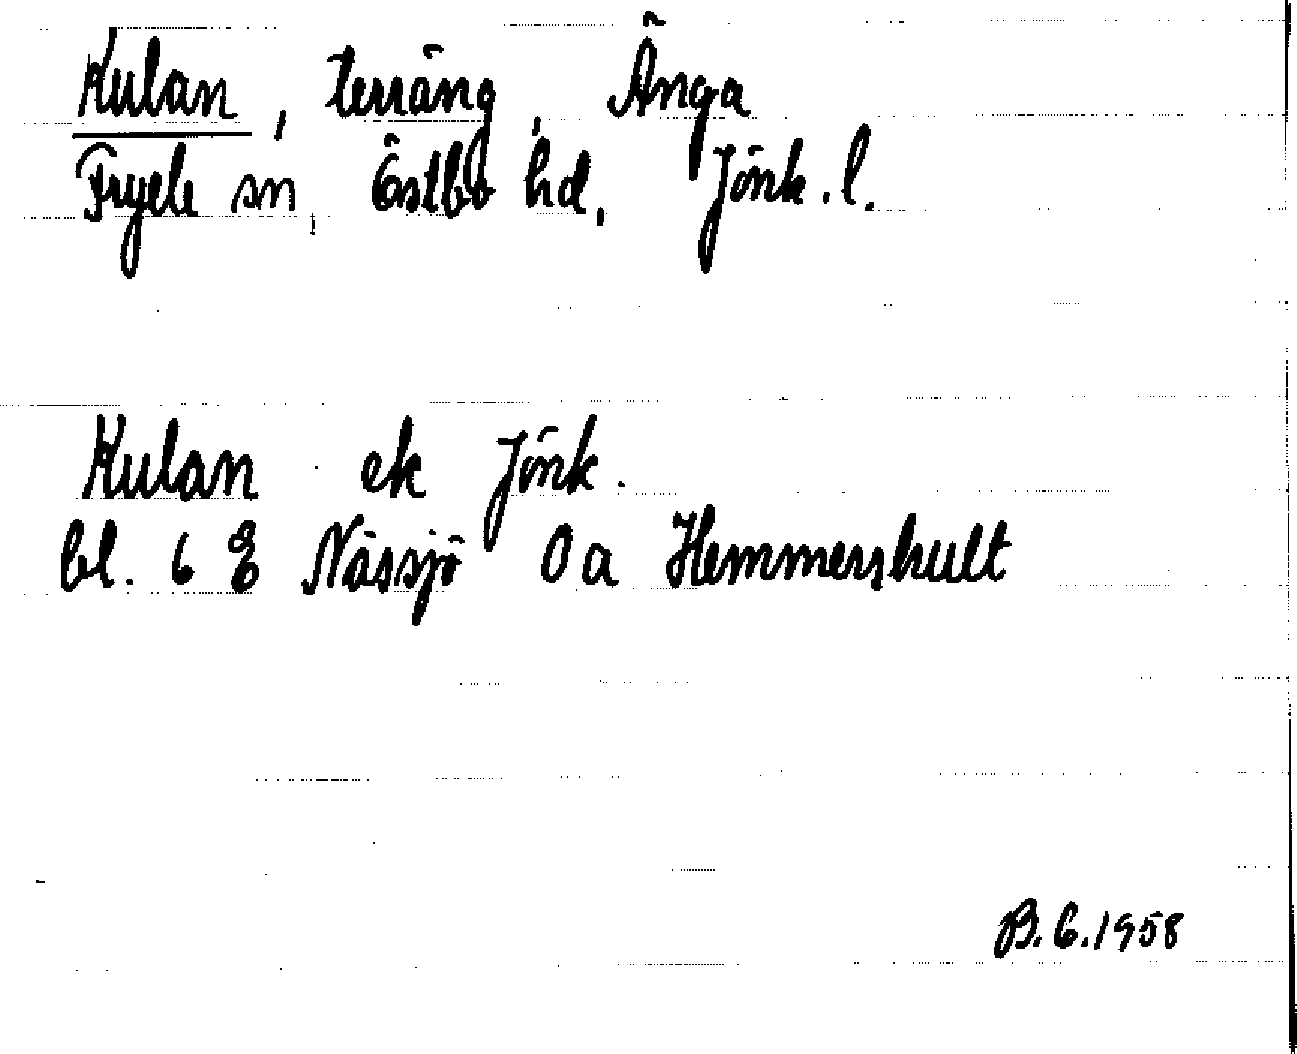 Kulan, terräng, Änga
Fryele sn, Östbo hd, Jönk. l.
Kulan ek Jönk.
bl. 6 E Nässjö 0a Hemmershult
B.G.1958